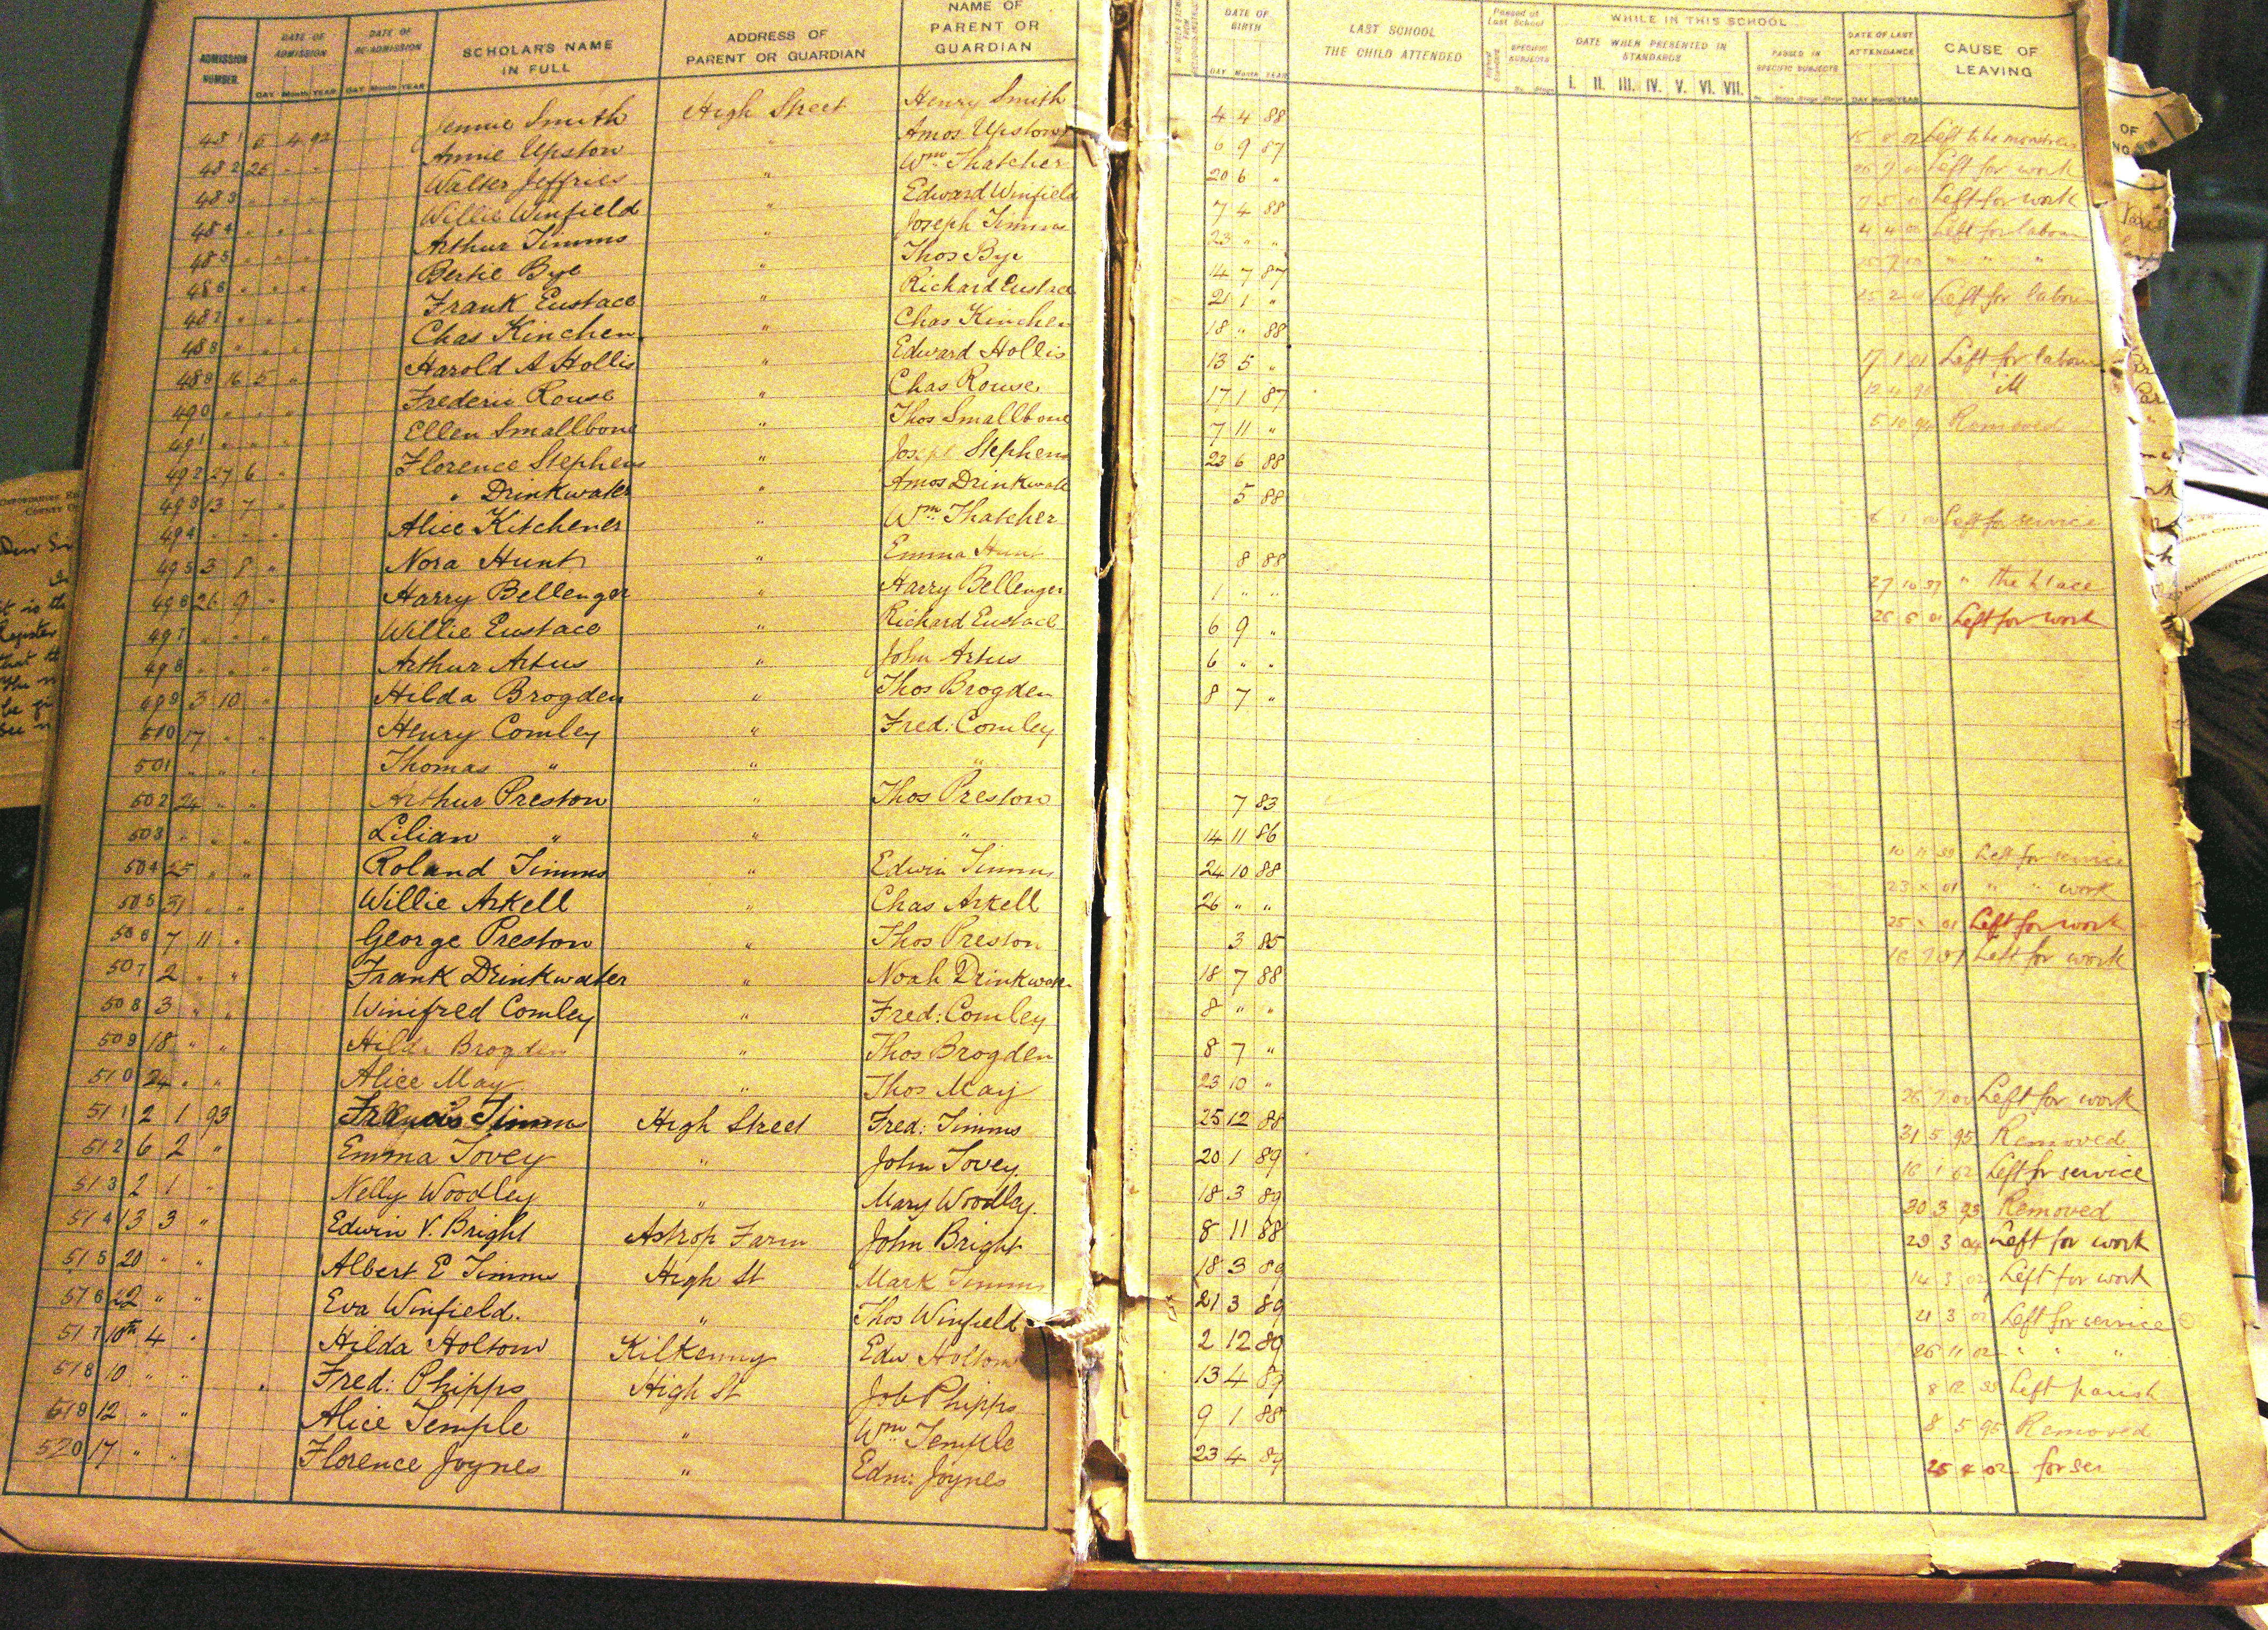 ADMISSION NUMBER. DATE OF ADMISSION DAY Month YEAR DATE OF RE-ADMISSION DAY Month YEAR SCHOLAR'S NAME IN FULL ADDRESS OF PARENT OR GUARDIAN NAME OF PARENT OR GUARDIAN
DATE OF BIRTH DAY Month YEAR LAST SCHOOL THE CHILD ATTENDED Passed at Last School SPECIFIC SUBJECTS WHILE IN THIS SCHOOL DATE WHEN PRESENTED IN STANDARDS I. II. III. IV. V. VI. VII. PASSED IN SPECIFIC SUBJECTS DATE OF LAST ATTENDANCE DAY Month YEAR CAUSE OF LEAVING
481 5 4 92 Jennie Smith High Street Henry Smith 4 4 88 Left to be monitress
482 25 " " Annie Upston " Amos Upston 6 9 87 Left for work
483 " " " Walter Jeffries " Wm Thatcher 20 6 " Left for work
484 " " " Willie Winfield " Edward Winfield 7 4 88 4 4 Left for labour
485 " " " Arthur Timms " Joseph Timms 23 " " " " "
486 " " " Bertie Bye " Thos Bye 14 7 87 Left for labour
487 " " " Frank Eustace " Richard Eustace 21 1 "
488 " " " Chas Kinchen " Chas Kinchen 18 " 88 17 1 01 Left for labour
489 16 5 " Harold A Hollis " Edward Hollis 13 5 " 12 4 ill
490 " " " Frederic Rouse " Chas Rouse 17 1 87 5 10 94 Removed
491 " " " Ellen Smallbone " Thos Smallbone 7 11 "
492 27 6 " Florence Stephens " Joseph Stephens 23 6 88
493 13 7 " " Drinkwater " Amos Drinkwater 5 88 Left for service
494 " " " Alice Kitchener " Wm Thatcher
495 3 8 " Nora Hunt " Emma Hunt 8 88 27 10 97 " the place
496 26 9 " Harry Bellenger " Harry Bellenger 1 " " Left for work
497 " " " Willie Eustace " Richard Eustace 6 9 "
498 " " " Arthur Artus " John Artus 6 " "
499 3 10 " Hilda Brogden " Thos Brogden 8 7 "
510 17 " " Henry Comley " Fred: Comley
501 " " " Thomas " " "
502 24 " " Arthur Preston " Thos Preston 7 83
503 " " " Lilian " " " 14 11 86 Left for service
504 25 " " Roland Timms " Edwin Timms 24 10 88 " " work
505 31 " " Willie Arkell " Chas Arkell 26 " " Left for work
506 7 11 " George Preston " Thos Preston 3 85 Left for work
507 2 " " Frank Drinkwater " Noah Drinkwater 18 7 88
508 3 " " Winifred Comley " Fred: Comley 8 " "
509 18 " " Hilda Brogden " Thos Brogden 8 7 "
510 24 " " Alice May " Thos May 23 10 " Left for work
511 2 1 93 Francis Timms High Street Fred: Timms 25 12 88 31 5 95 Removed
512 6 2 " Emma Tovey " John Tovey. 20 1 89 16 1 02 Left for service
513 2 1 " Nelly Woodley " Mary Woodley. 18 3 89 30 3 93 Removed
514 13 3 " Edwin V. Bright Astrop Farm John Bright 8 11 88 29 3 04 Left for work
515 20 " " Albert E Timms High St Mark Timms 18 3 89 14 3 02 Left for work
516 22 " " Eva Winfield. " Thos Winfield 21 3 89 21 3 02 Left for service
517 10th 4 " Hilda Holtom Kilkenny Edw Holtom 2 12 89 26 11 02 " " "
518 10 " " Fred: Phipps High St Job Phipps 13 4 89 8 12 Left parish
519 12 " " Alice Temple " Wm Temple 9 1 88 8 5 95 Removed
520 17 " " Florence Joynes " Edm: Joynes 23 4 89 25 4 02 for ser